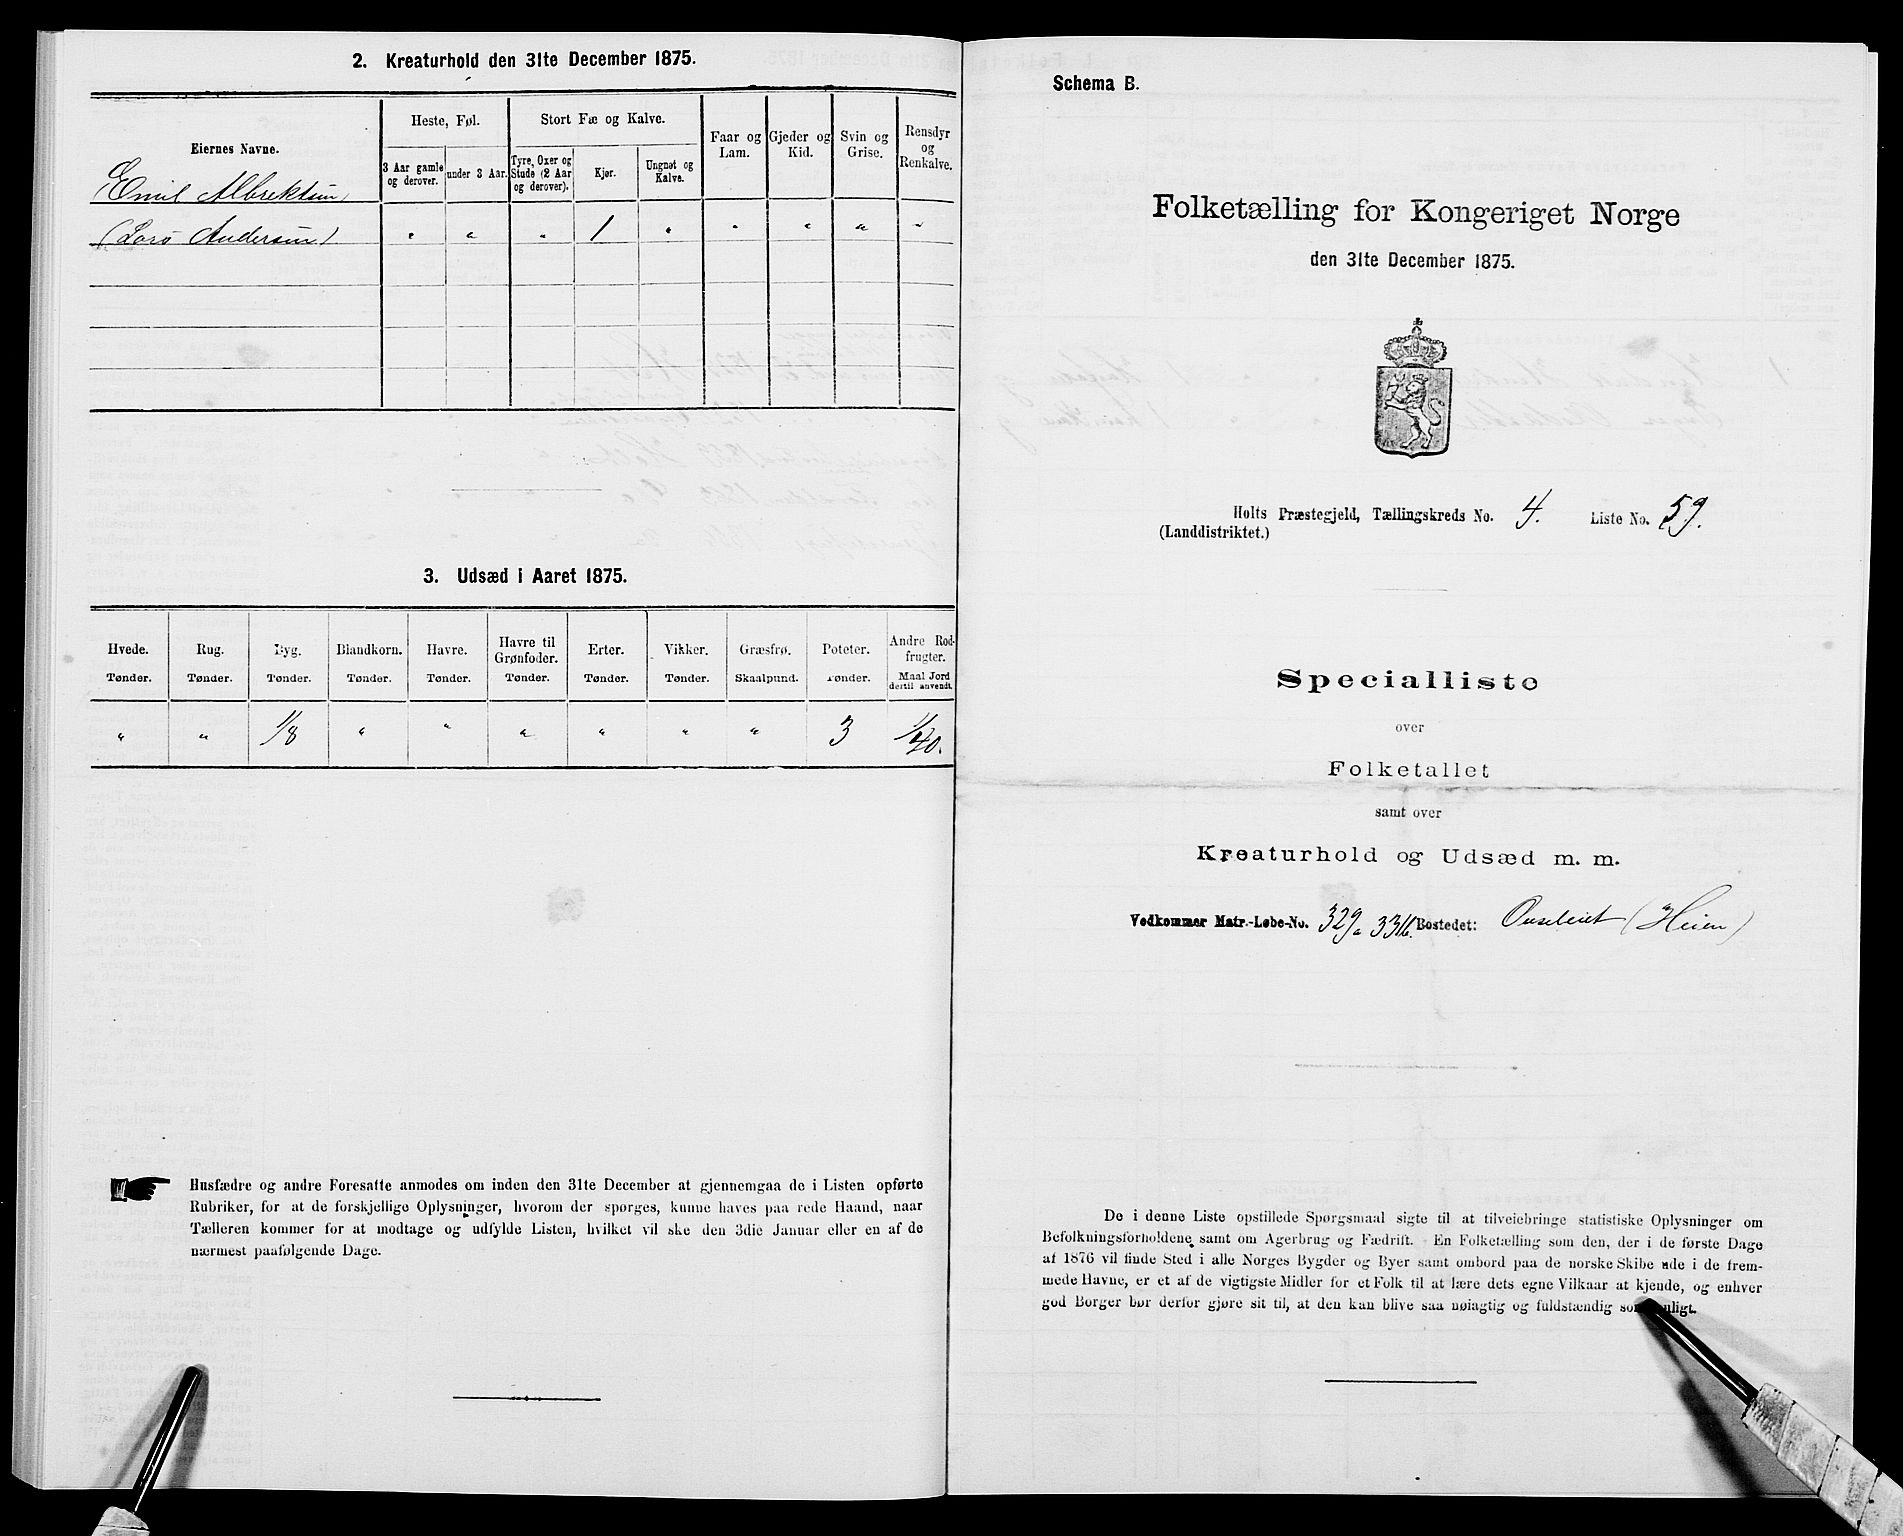 2. Kreaturhold den 31te December 1875.
Eiernes Navne.
Heste, Føl.
Stort Fæ og Kalve.
Faar og Lam.
Gjeder og Kid.
Svin og Grise.
Rensdyr og Renkalve.
3 Aar gamle og derover.
under 3 Aar.
Tyre, Oxer og Stude (2 Aar og derover).
Kjør.
Ungnøt og Kalve.
Emil Albrektsen
(Lars Andersen) " " " 1 " " " " "
3. Udsæd i Aaret 1875.
Hvede. Rug. Byg. Blandkorn. Havre. Havre til Grønfoder. Erter. Vikker. Græsfrø. Poteter. Andre Rodfrugter.
Tønder. Tønder. Tønder. Tønder. Tønder. Tønder. Tønder. Tønder. Skaalpund. Tønder. Maal Jord dertil anvendt.
" " 1/8 " " " " " " 3 1/40.
Husfædre og andre Foresatte anmodes om inden den 31te December at gjennemgaa de i Listen opførte
Rubriker, for at de forskjellige Oplysninger, hvorom der spørges, kunne haves paa rede Haand, naar
Tælleren kommer for at modtage og udfylde Listen, hvilket vil ske den 3die Januar eller en af de
nærmest paafølgende Dage.
Schema B.
Folketælling for Kongeriget Norge
den 31te December 1875.
Holts Præstegjeld, Tællingskreds No. 4. Liste No. 59.
(Landdistriktet.)
Specialliste
over
Folketallet
samt over
Kreaturhold og Udsæd m. m.
Vedkommer Matr.-Løbe-No. 329a 331b. Bostedet: (Heien)
De i denne Liste opstillede Spørgsmaal sigte til at tilveiebringe statistiske Oplysninger om
Befolkningsforholdene samt om Agerbrug og Fædrift. En Folketælling som den, der i de første Dage
af 1876 vil finde Sted i alle Norges Bygder og Byer samt ombord paa de norske Skibe ude i de frem-
mede Havne, er et af de vigtigste Midler for et Folk til at lære dets egne Vilkaar at kjende, og enhver
god Borger bør derfor gjøre sit til, at den kan blive saa nøiagtig og fuldstændig som muligt.